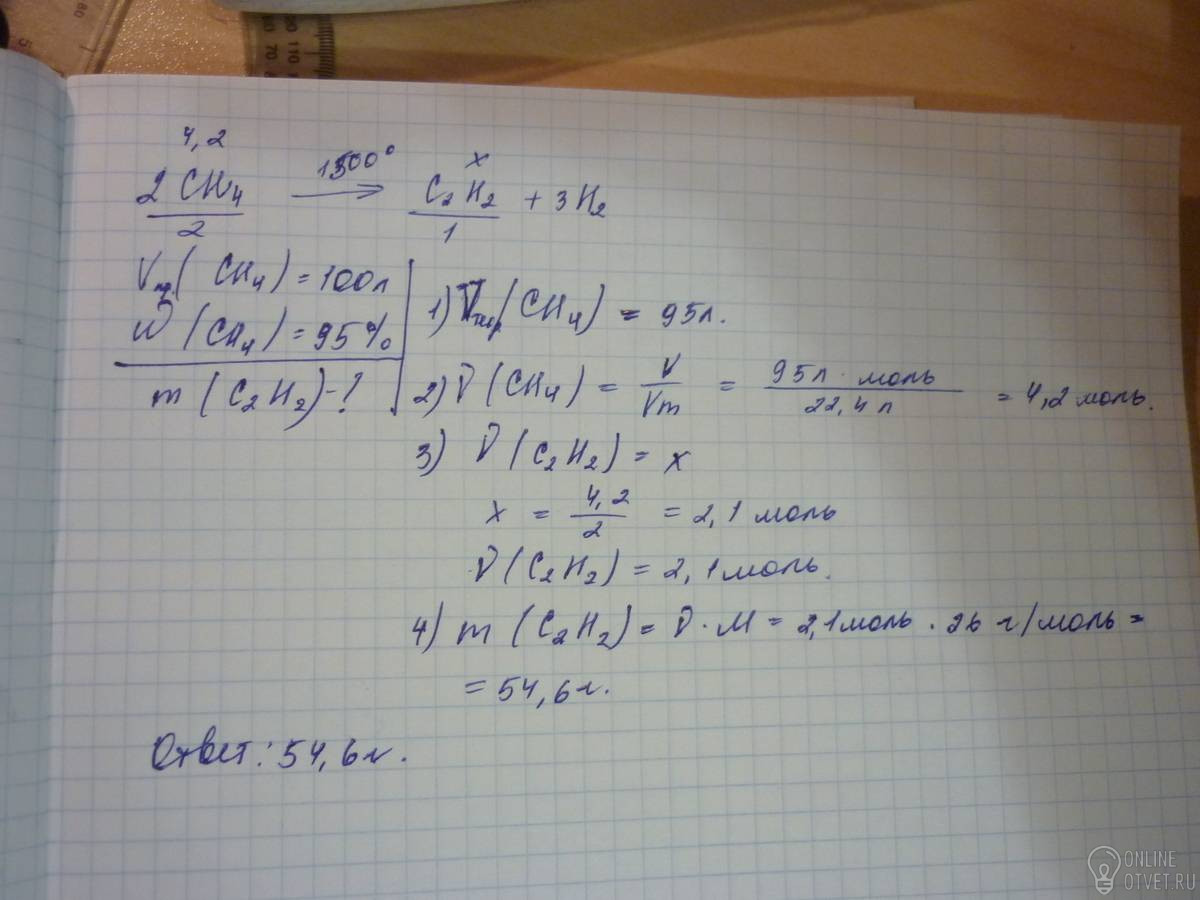 4,2
2CH4 1500° → C2H2 + 3H2
x
2
1
Vпр.(CH4) = 100л
W(CH4) = 95%
m(C2H2)-?
1) Vтеор.(CH4) = 95л.
2) ν(CH4) = V/Vm = 95л · моль/22,4л = 4,2 моль.
3) ν(C2H2) = x
x = 4,2/2 = 2,1 моль
ν(C2H2) = 2,1 моль.
4) m(C2H2) = ν · M = 2,1 моль · 26 г/моль =
= 54,6 г.
Ответ: 54,6 г.
ONLINE
OTVET.RU